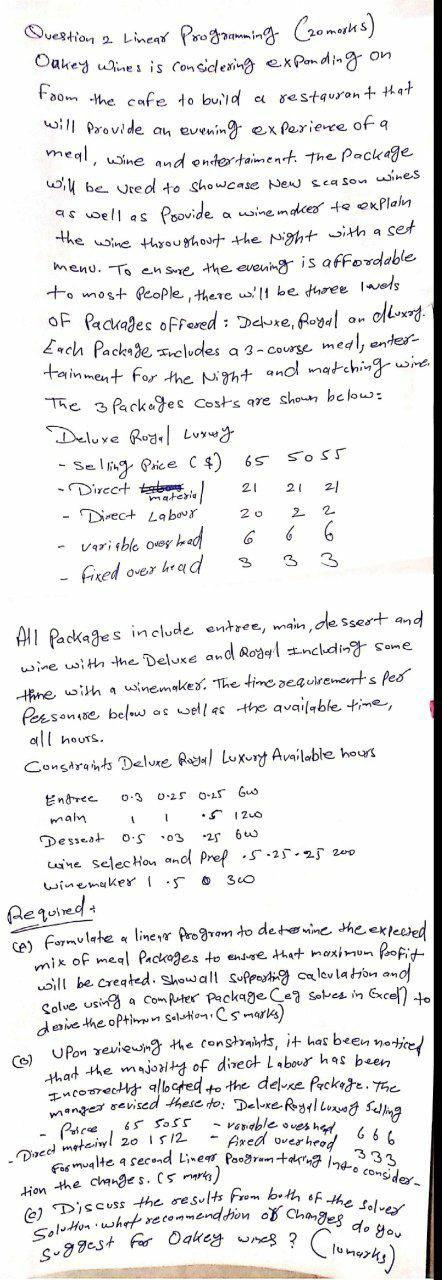 Question 2 Linear Programming. (20 marks)
Oakey Wines is considering expanding on
from the cafe to build a restaurant that
will Provide an evening experience of a
meal, wine and entertaiment. The Package
will be used to showcase New season wines
as well as Provide a winemaker to explain
the wine throughout the Night with a set
menu. To ensure the evening is affordable
to most people, there will be three levels
of Packages offered: Deluxe, Royal an dLuxury.
Each Package Includes a 3-course meal, enter-
tainment for the Night and matching wine.
The 3 Packages costs are shown below:
Deluxe Royal Luxury
- Selling Price ($) 65 50 55
- Direct material 21 21 21
- Direct Labour 20 2 2
- variable overhead 6 6 6
- fixed overhead 3 3 3
All Packages include entree, main, dessert and
wine with the Deluxe and Royal Including some
time with a winemaker. The time requirements Per
Person are below as well as the available time,
all hours.
Constraints Deluxe Royal Luxury Available hours
Entree 0.3 0.25 0.25 600
main 1 1 .5 1200
Dessert 0.5 .03 .25 600
wine selection and Prep .5 .25 .25 200
winemaker 1 .5 0 300
Required:
(A) Formulate a linear Program to determine the expected
mix of meal Packages to ensure that maximum Profit
will be created. Show all supporting calculation and
Solve using a computer package (eg solver in Excel) to
derive the optimum solution. (5 marks)
(B) Upon reviewing the constraints, it has been noticed
that the majority of direct Labour has been
Incorrectly allocated to the deluxe Package. The
manger revised these to: Deluxe Royal Luxury Selling
- Price 65 50 55 - variable overhead 6 6 6
- Direct material 20 15 12 - fixed overhead 3 3 3
Formualte a second Linear Program taking Into consider-
tion the changes. (5 marks)
(C) Discuss the results from both of the solver
Solution. what recommendtion of changes do you
suggest for Oakey wines? (10 marks)